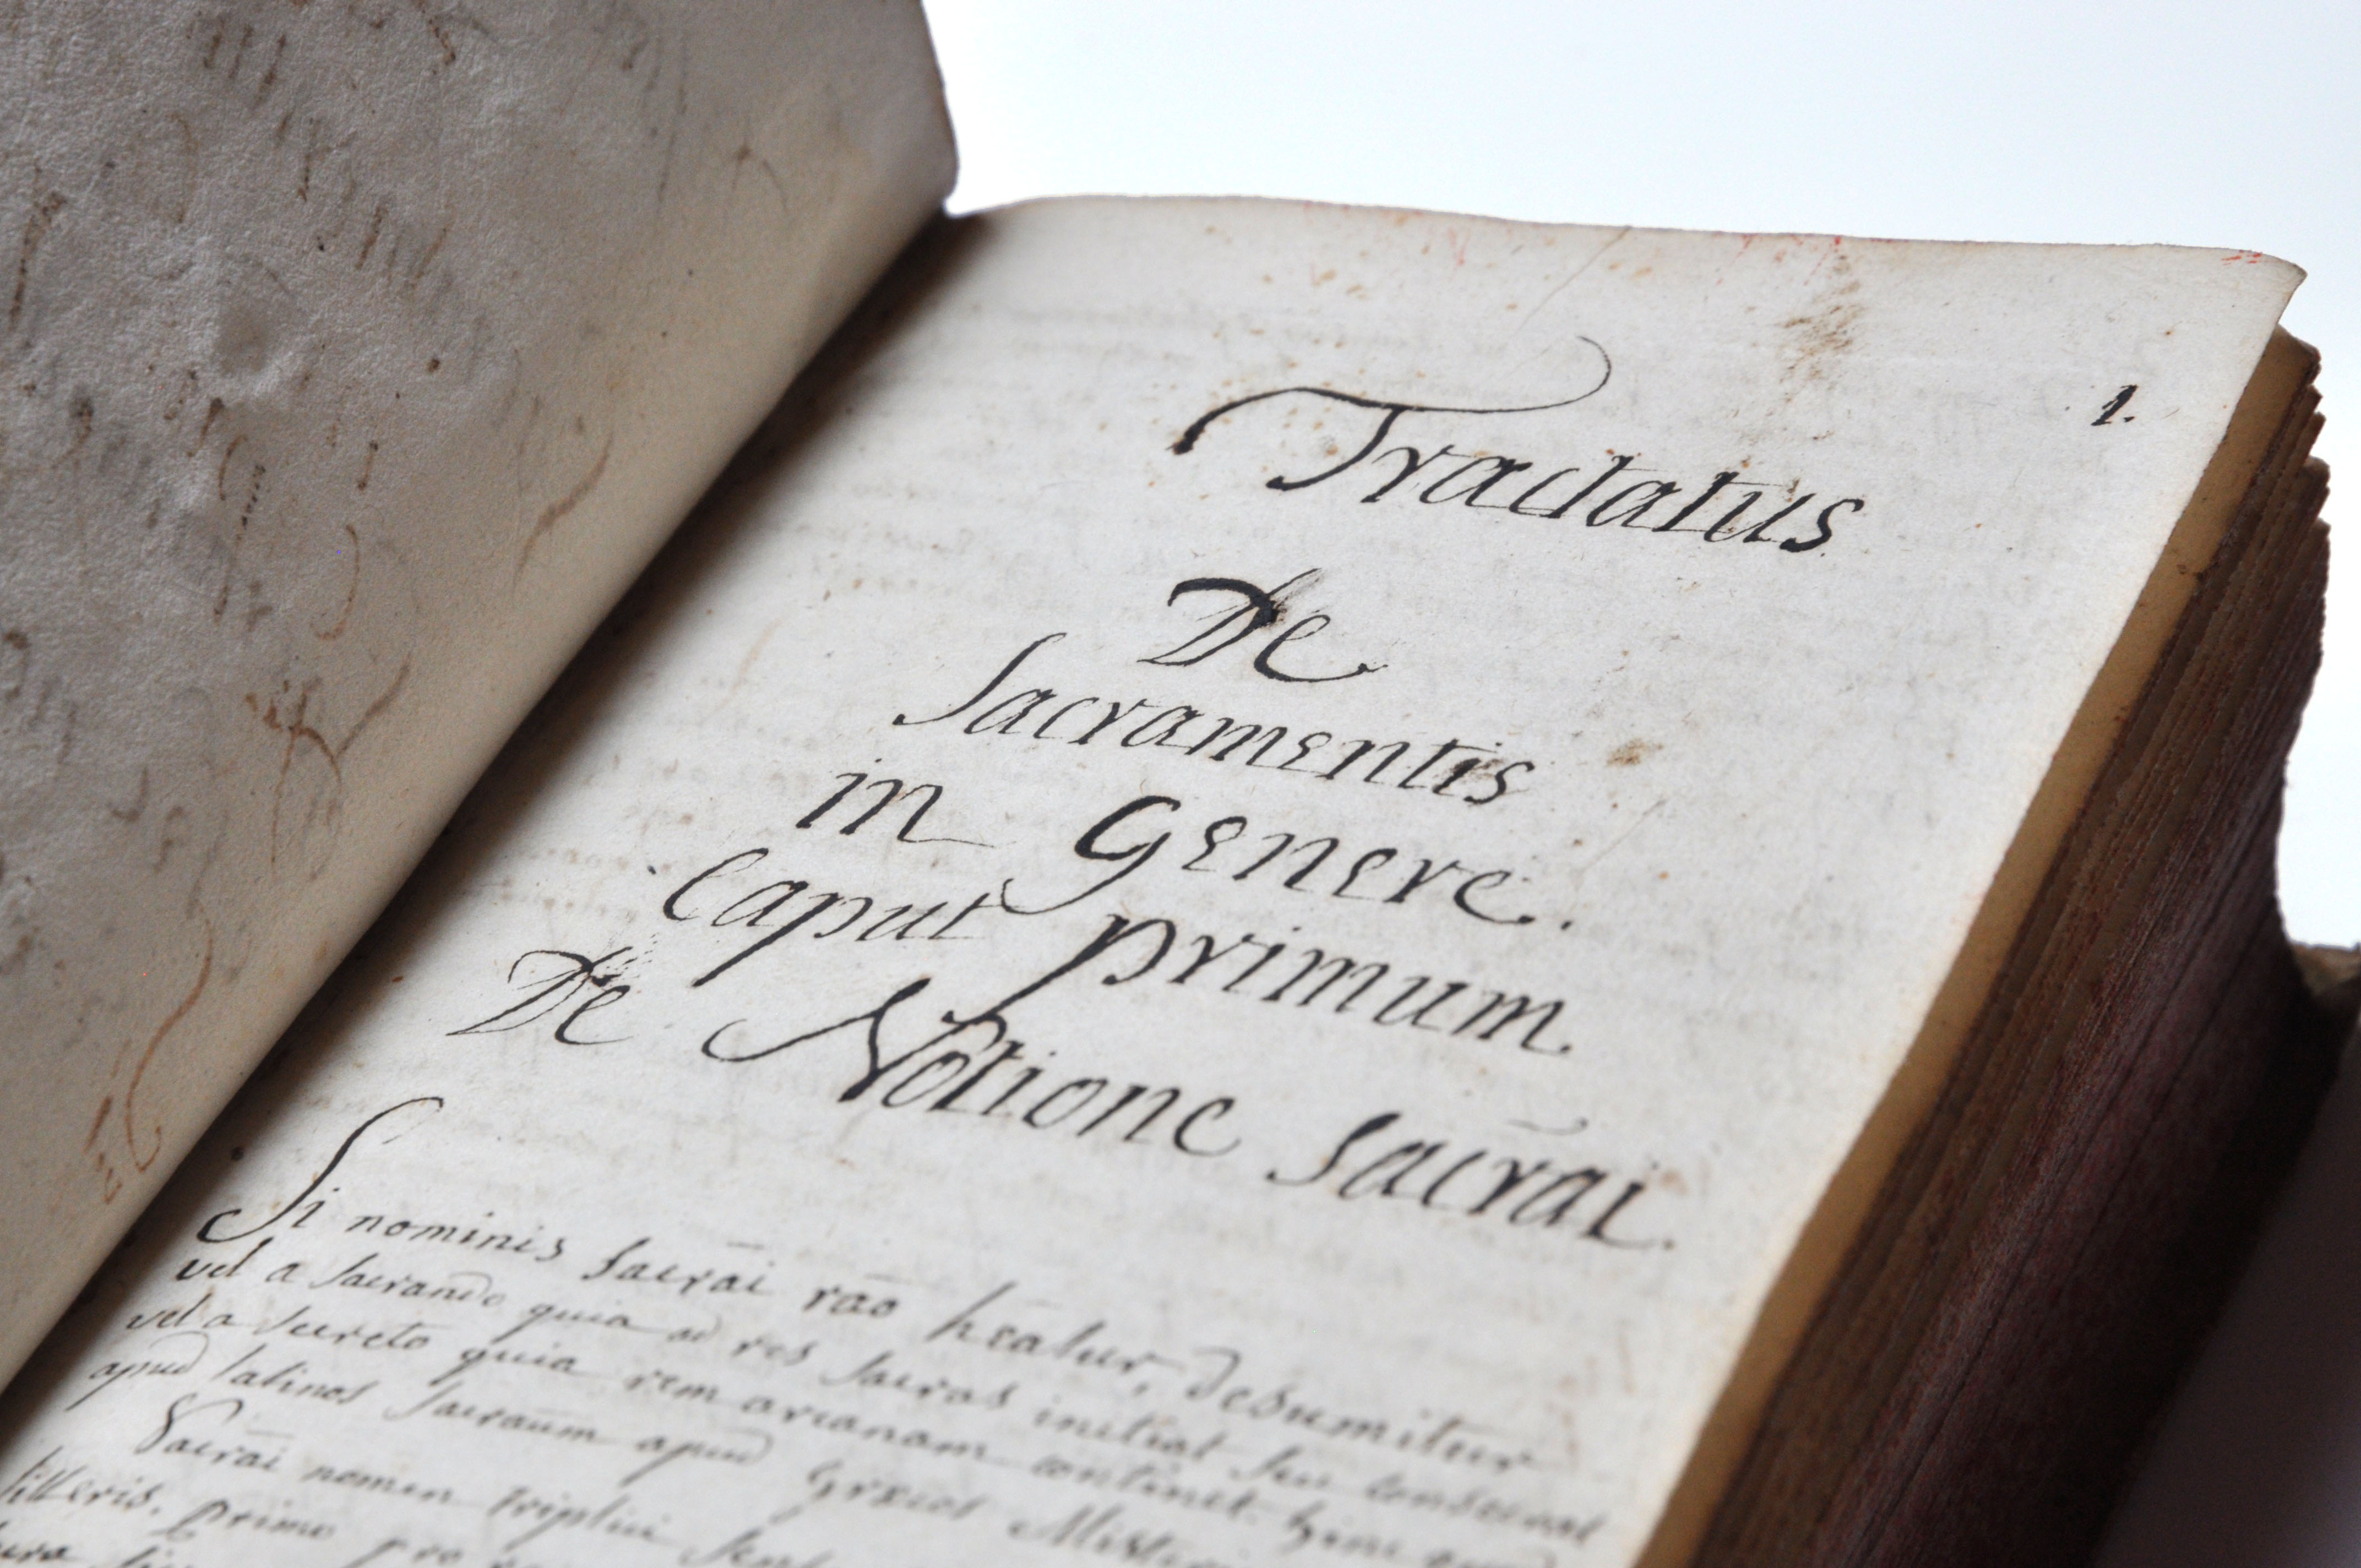 1.
Tractatus
De
Sacramentis
in Genere.
Caput primum
De Notione sacr̄ai.
Si nominis sacr̄ai rāo hēatur, desumitur
vel a sacrando quia ad res sacras initiat seu consecrat
vel a secreto quia rem arcanam continet hinc quod
apud latinos sacraūm apud Græcos Misteri
Sacr̄ai nomen triplici sen
litteris. primo pro